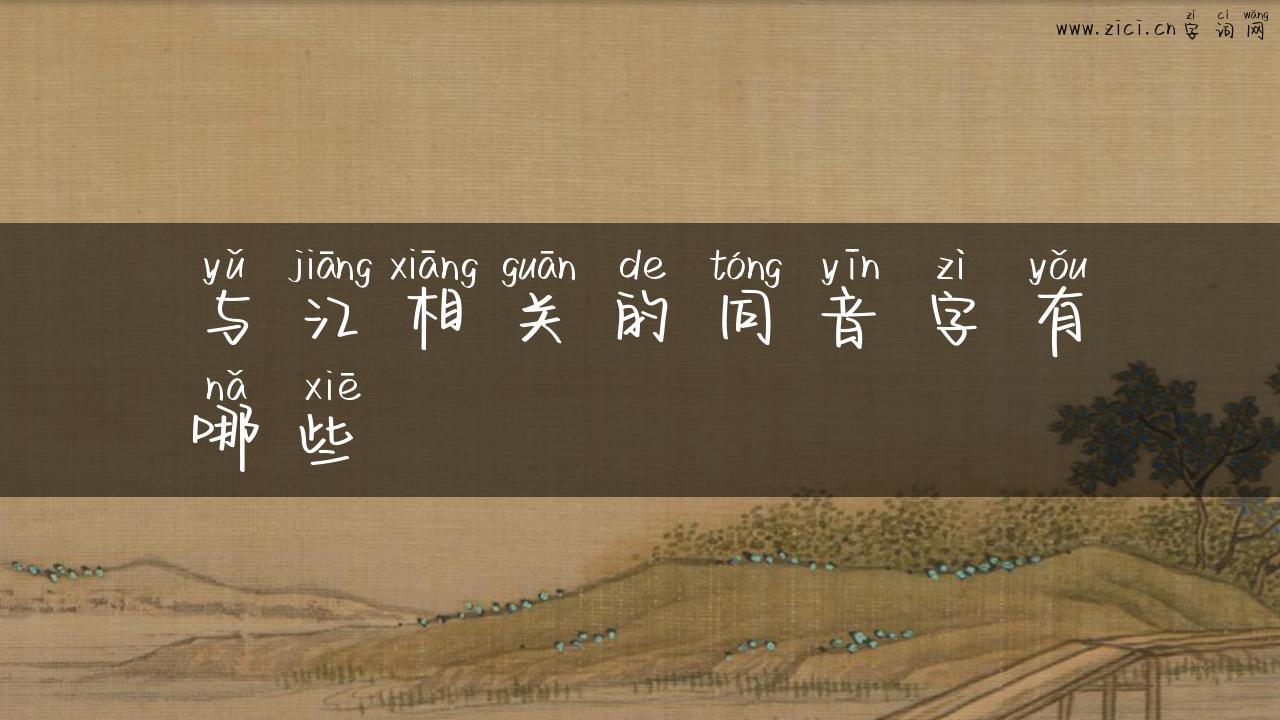 zì cí wǎng
www.zici.cn字词网
yǔ jiāng xiāng guān de tóng yīn zì yǒu
与江相关的同音字有
nǎ xiē
哪些